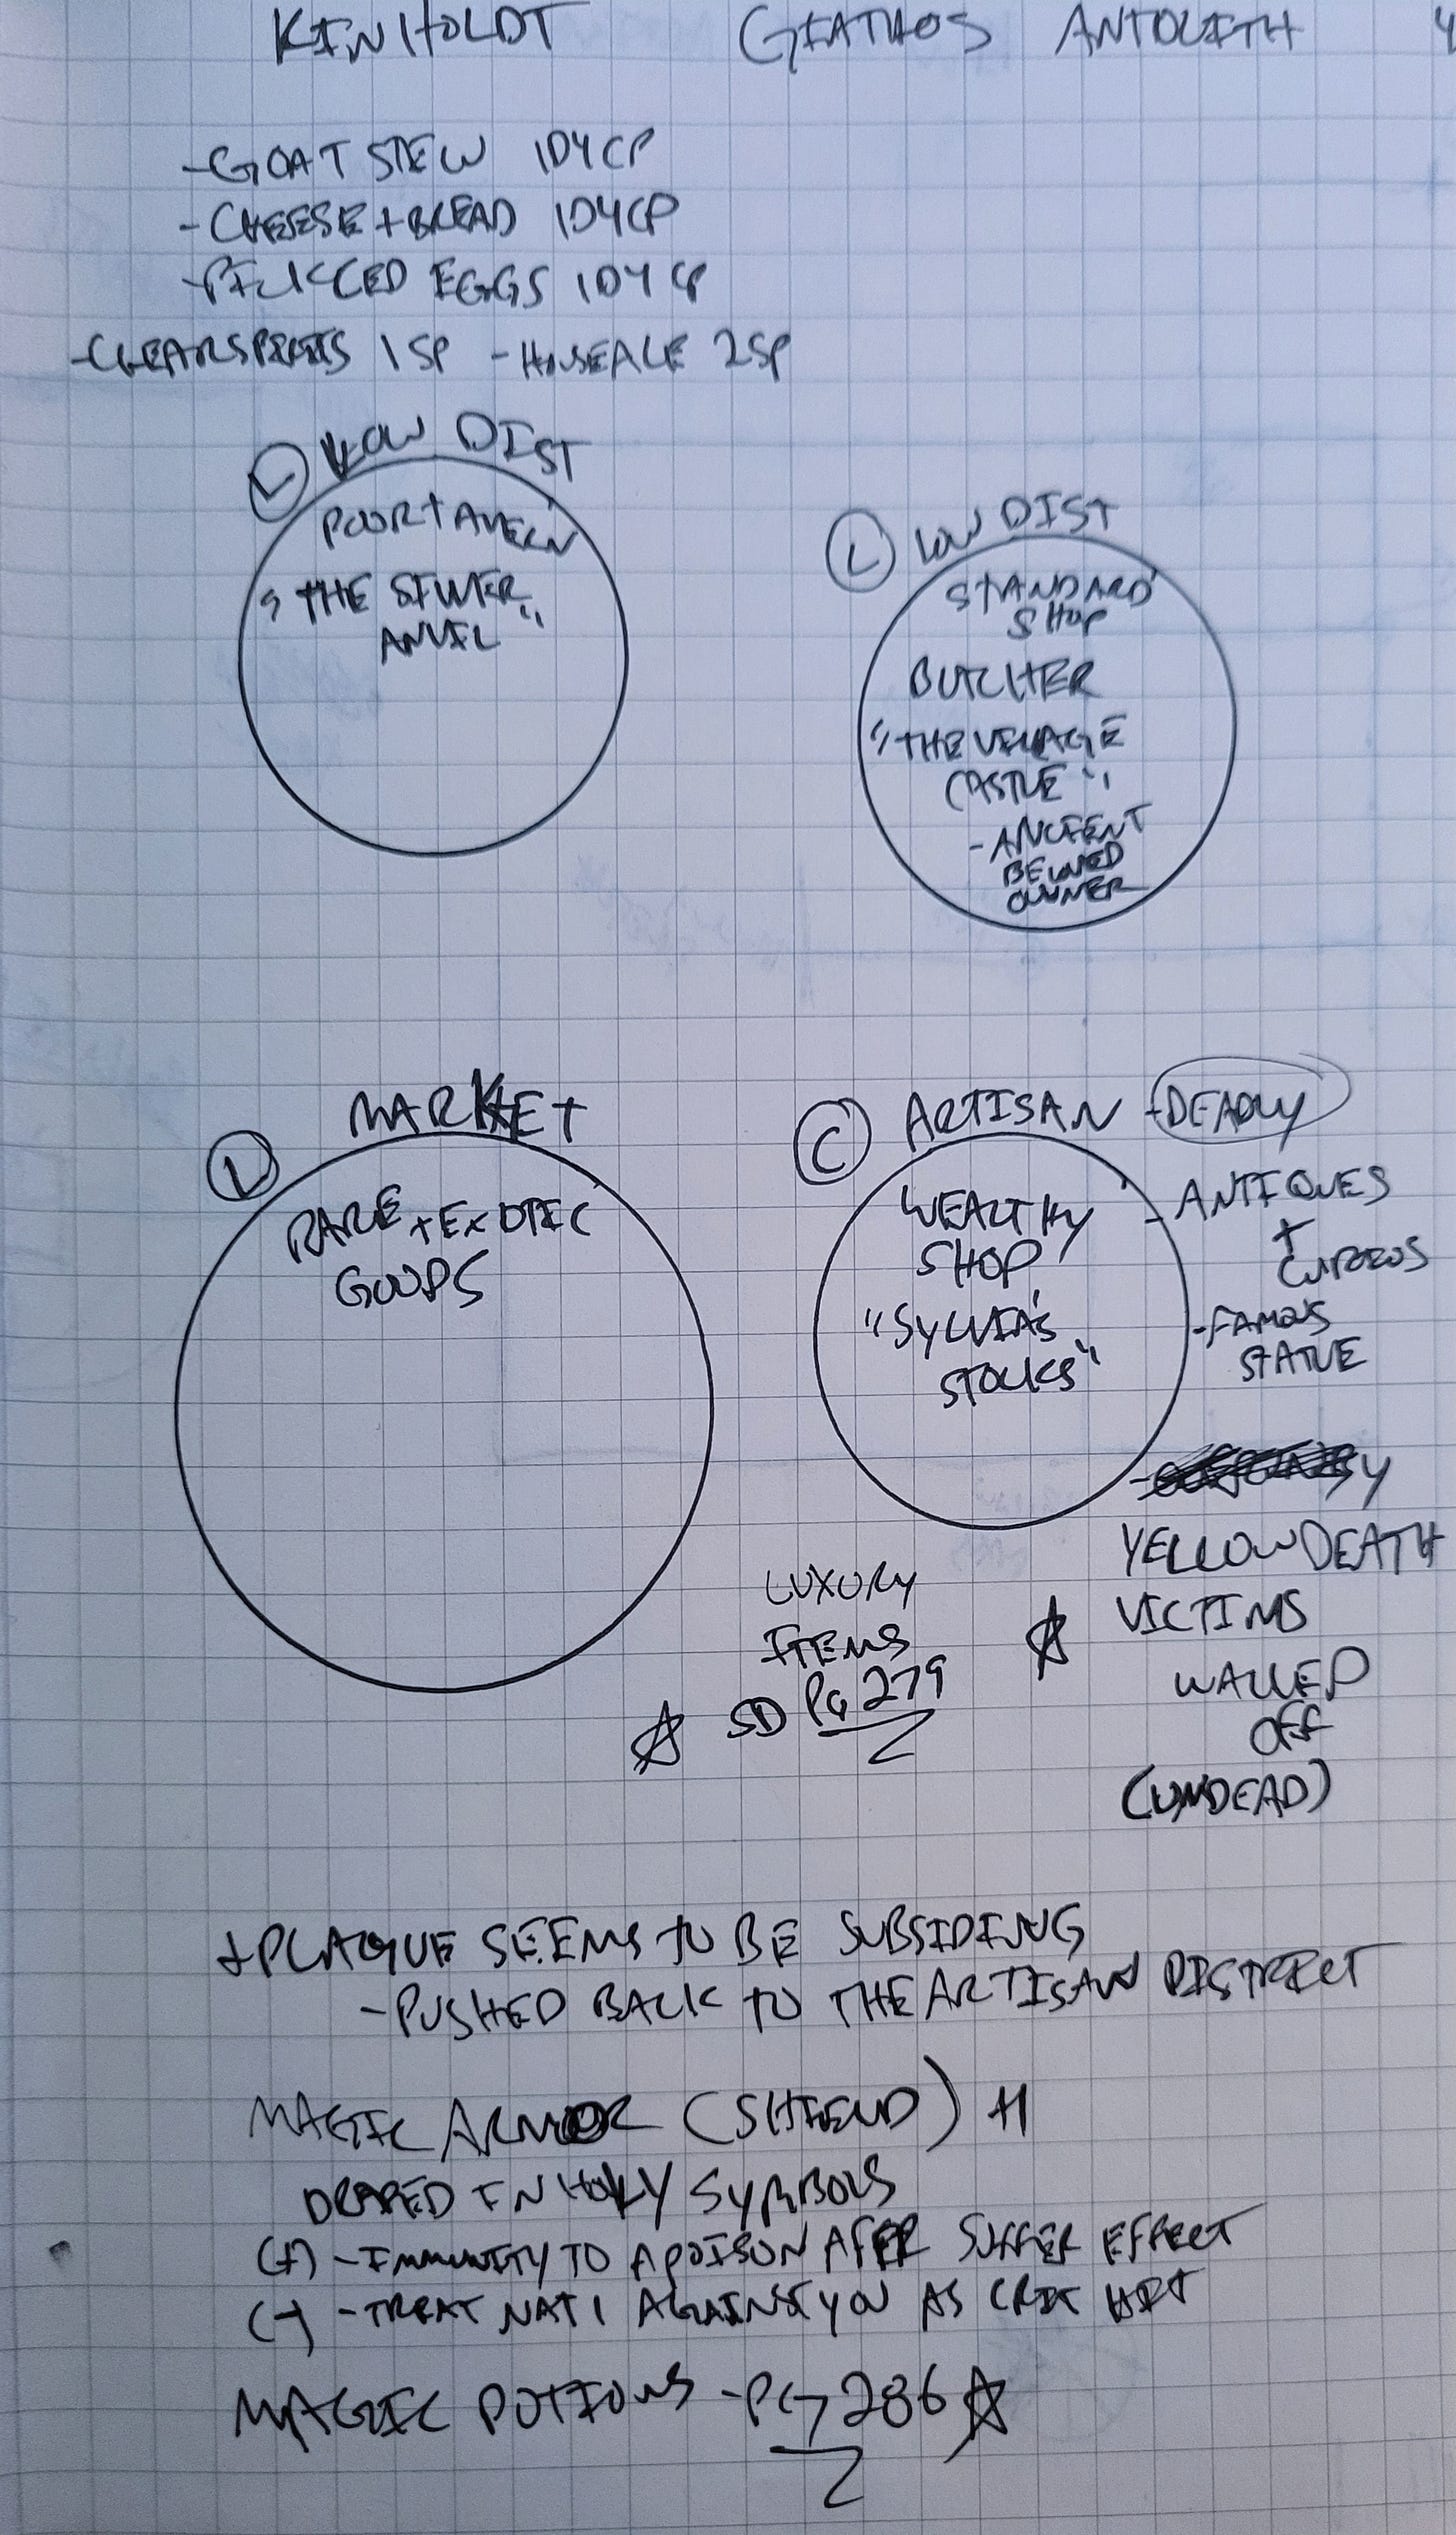 KINHOLDT GIATHOS ANTOLITH 4
-GOAT STEW 1D4CP
-CHEESE+BREAD 1D4CP
-PICKLED EGGS 1D4CP
-CLEARSPIRITS 1SP -HOUSEALE 2SP
L LOW DIST
POOR TAVERN
"THE SILVER
ANVIL"
L LOW DIST
STANDARD
SHOP
BUTCHER
"THE VILLAGE
CASTLE"
-ANCIENT
BELOVED
OWNER
L MARKET
RARE+EXOTIC
GOODS
C ARTISAN -DEADLY
WEALTHY
SHOP
"SYLVIA'S
STOCKS"
-ANTIQUES
+
CURIOS
-FAMOUS
STATUE
YELLOW DEATH
VICTIMS
WALLED
OFF
(UNDEAD)
LUXURY
ITEMS
SD PG 279
+PLAGUE SEEMS TO BE SUBSIDING
-PUSHED BACK TO THE ARTISAN DISTRICT
MAGIC ARMOR (SHIELD) +1
DRAPED IN HOLY SYMBOLS
(+) -IMMUNITY TO A POISON AFTER SUFFER EFFECT
(-) -TREAT NAT 1 AGAINST YOU AS CRIT HIT
MAGIC POTIONS -PG 286